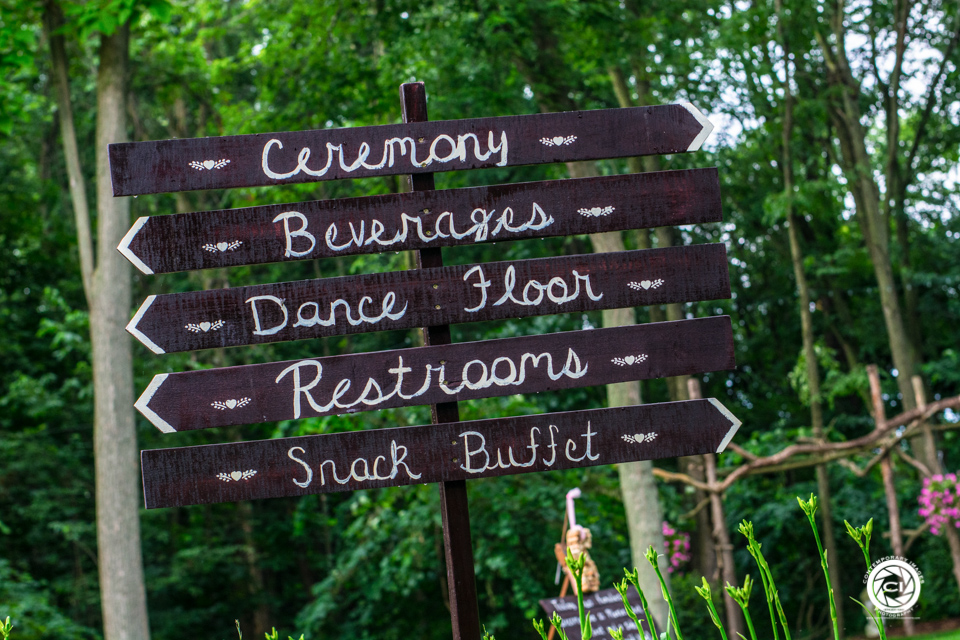 Ceremony
Beverages
Dance Floor
Restrooms
Snack Buffet
CONTEMPORARY IMAGE